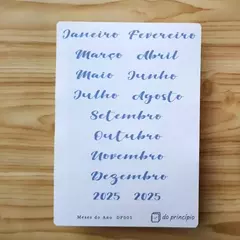 Janeiro Fevereiro
Março Abril
Maio Junho
Julho Agosto
Setembro
Outubro
Novembro
Dezembro
2025 2025
Meses do Ano
do princípio